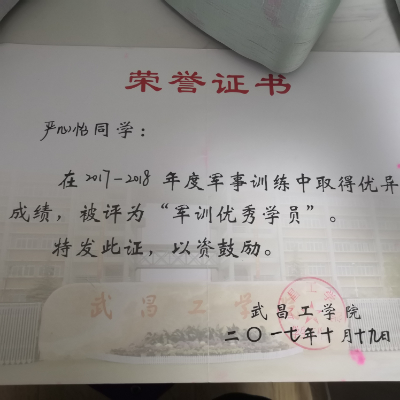 荣誉证书
严心怡同学：
在2017-2018年度军事训练中取得优异
成绩，被评为“军训优秀学员”。
特发此证，以资鼓励。
武昌工学
武昌工学院
二〇一七年十月十九日